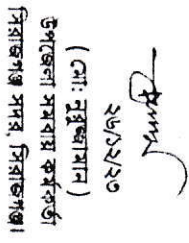 ২৬/১২/২৩
(মোঃ নুরুজ্জামান)
উপজেলা সমবায় কর্মকর্তা
সিরাজগঞ্জ সদর, সিরাজগঞ্জ।